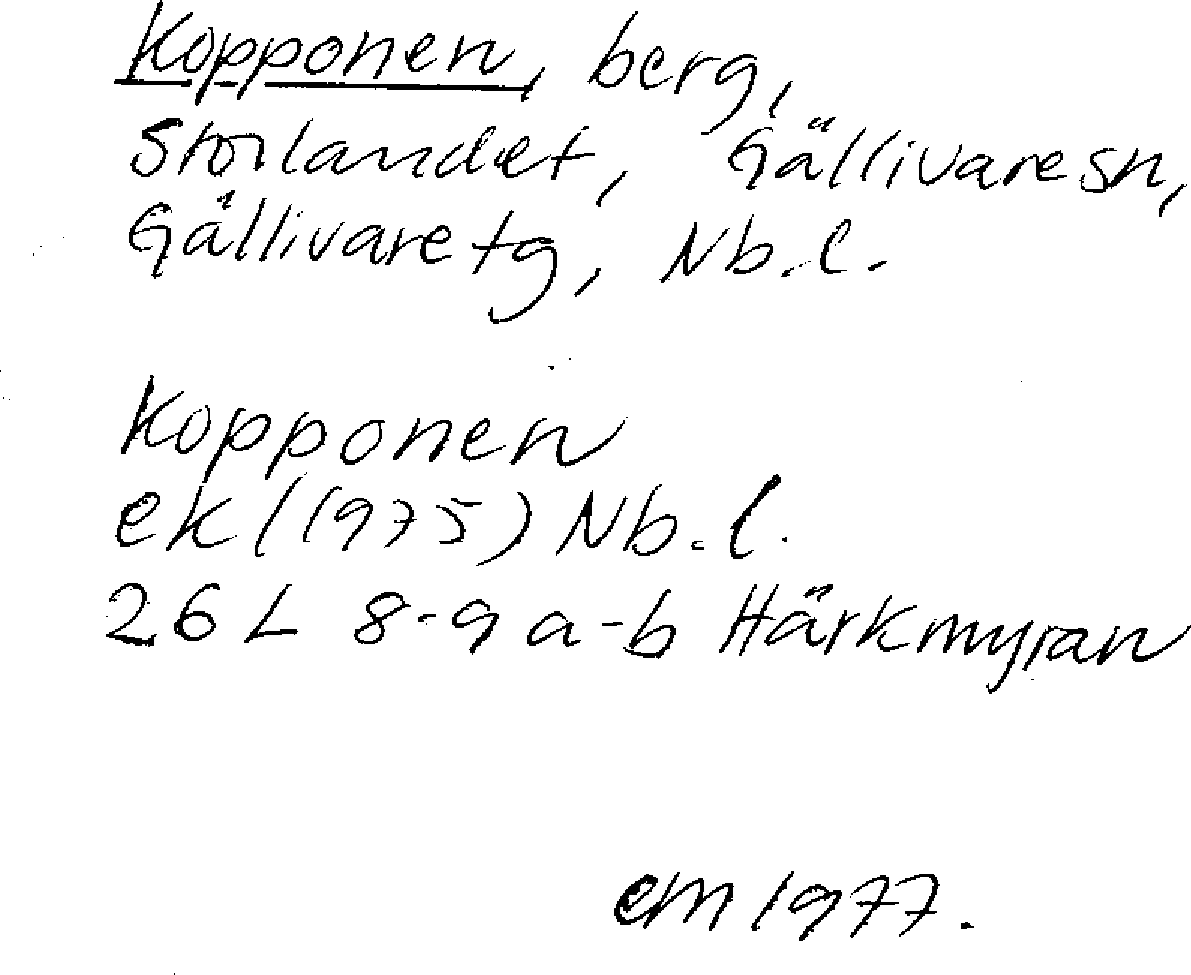 Kopponen, berg,
Storlandet, Gällivare sn,
Gällivare tg, Nb.l.
Kopponen
ek (1975) Nb.l.
26 L 8-9 a-b Härkmyran
em 1977.